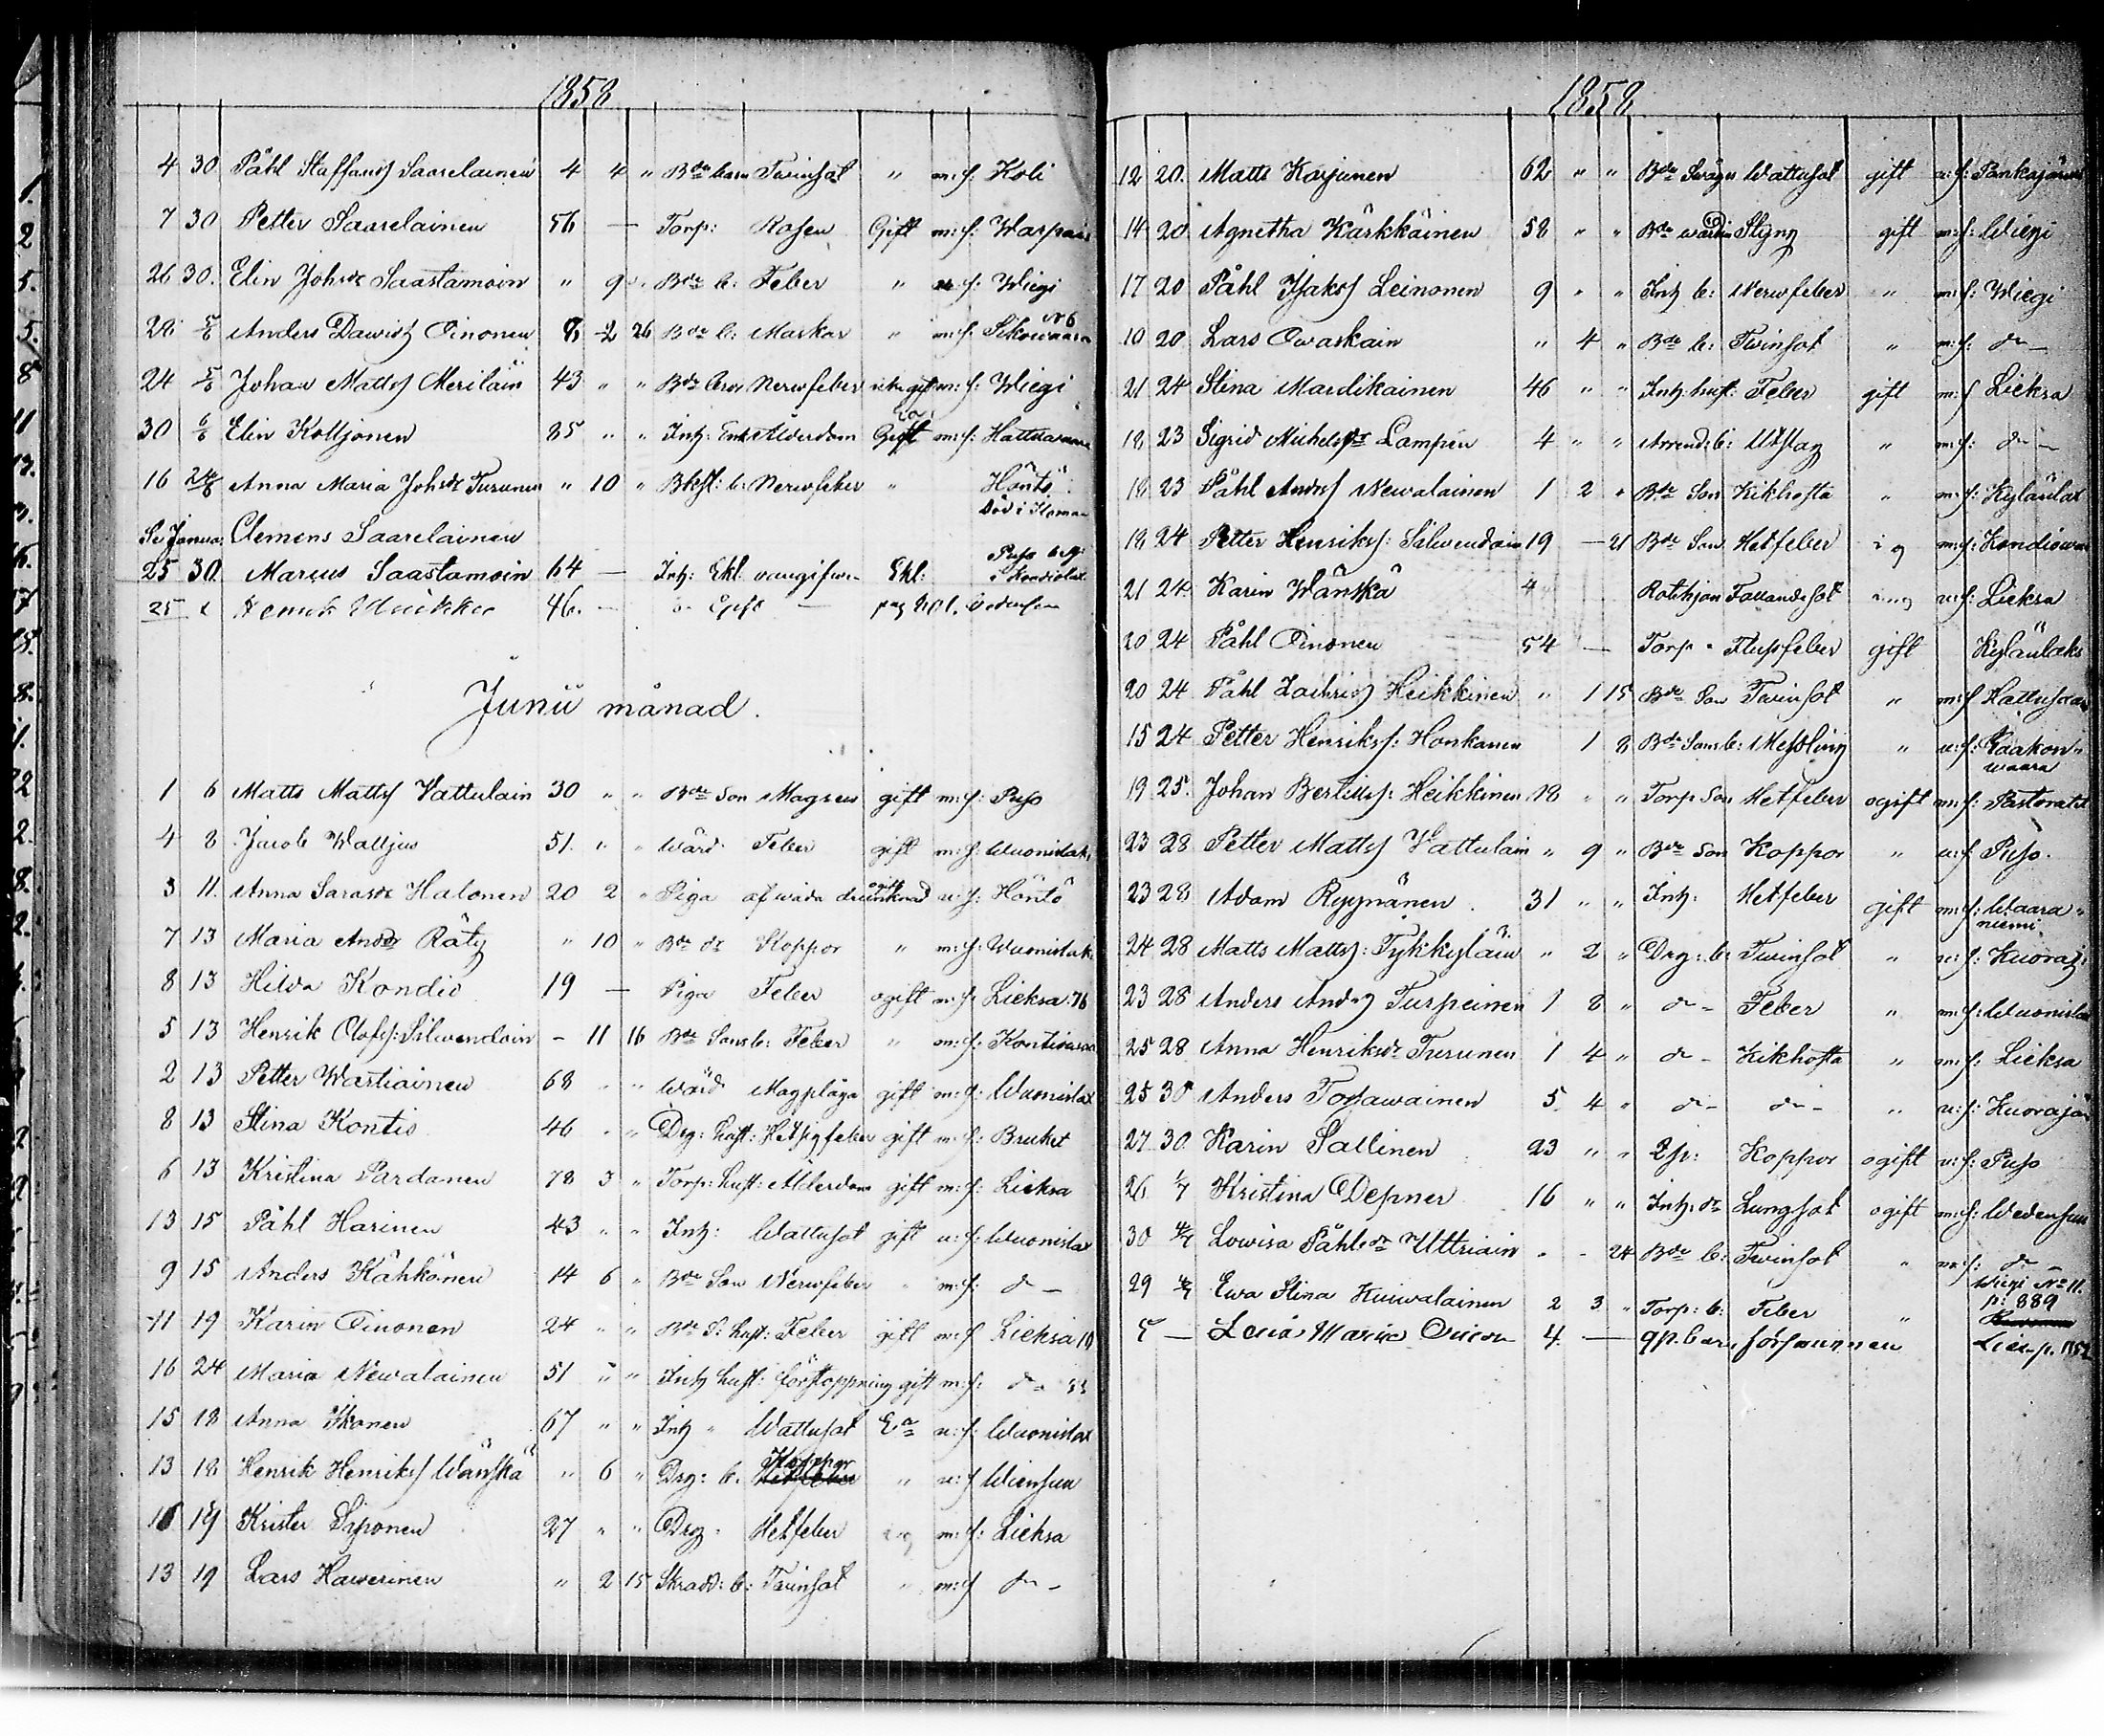 1858
4 30 Påhl Staffanss Saarelainen 4 4 " Bde barn Twinsot " m: f: Koli
7 30 Petter Saarelainen 56 — Torp: Rosen Gift m: f: Warpais
26 30. Elin Johsdr Saastamoin " 9 " Bde b: Feber " m: f: Wiegi
28 5/6 Anders Dawidss Oinonen 8 2 26 Bde b: Maskar " m: f: Sikowaara N 6
24 5/6 Johan Mattss Meriläin 43 " " Bde Nerwfeber m: f: Wiegi
30 6/6 Elin Kottjonen 85 " " Inh: Enk Ålderdom Gift Ea m: f: Hattuwaara
16 24/6 Anna Maria Johsdr Turunen " 10 " Bksf: b: Nerwfeber " Höntö
död i Iloman
Se Janua. Clemens Saarelainen
25 30 Marcus Saastamoin 64 — Inh: Ekl: Ekl: Puso
i Kondiolax
25 Henrik 46. — — pag 801.
Junii månad.
1 6 Matts Mattss Vattulain 30 " " Bde Son Magreu gift m: f: Puso
4 8 Jacob Walljus 51. " " Wärd Feber gift m: f: Wuonislak
3 11. Anna Sarasdr Halonen 20 2 " Piga af wåda drunknad ogift u: f: Höntö
7 13 Maria Andsdr Räty " 10 " Bde dr Koppor " m: f: Wuonislak
8 13 Hilda Kondio 19 — Piga Feber ogift m: f: Lieksa 76
5 13 Henrik Olofss: Silwendoin - 11 16 Bde Sons b: Feber " m: f: Kontiowaara
2 13 Petter Wartiainen 68 " " Wärd Magplåga gift m: f: Wuonislax
8 13 Stina Kontio 46 " " Drg: hust: Hetsigfeber gift m: f: Bruket
6 13 Kristina Pardanen 78 3 " Torp: hust: Ålderdom gift m: f: Lieksa
13 15 Påhl Harinen 43 " " Inh: Wattusot gift u: f: Wuonislax
9 15 Anders Kähkönen 14 6 " Bde Son Nerwfeber " m: f: do —
11 19 Karin Oinonen 24 " " Bde S: hust: Feber gift m: f Lieksa 10
16 24 Maria Newalainen 51 " " Inh hust: förstoppning gift m: f: do
15 18 Anna Ikonen 67 " " Inh " Wattusot Ea u: f: Wuonislax
13 18 Henrik Henrikss Wänskä " 6 " Drg: b. Koppor " u: f Wiensuu
16 19 Krister Siponen 27 " " Drg: Hetfeber i g m: f: Lieksa
13 19 Lars Hawerinen " 2 15 Skradd: b: Twinsot " m: f do -
1858
12 20. Matts Karjunen 62 " " Bde Swåger Wattusot gift u: f: Pankajärwi
14 20 Agnetha Kärkkäinen 58 " " Bde wärdin Styng gift m: f: Wiegi
17 20 Påhl Isakss Leinonen 9 " " Inh b: Nerwfeber " m: f: Wiegi
10 20 Lars Owaskain " 4 " Bde b: Twinsot " m: f: do —
21 24 Stina Mardikainen 46 " " Inh: hust: Feber gift m: f Lieksa
18 23 Sigrid Michelsdr Lampen 4 " " Arrend: b: Utslag " m: f: do —
18 23 Påhl Andrss Newalainen 1 2 " Bde Son Kikhosta " m: f: Kyläulax
18 24 Petter Henrikss: Silwendoin 19 — 21 Bde Son Hetfeber i g m: f: Kondiowaa
21 24 Karin Wänskä 4 Rotehjon Fallandesot u: f: Lieksa
20 24 Påhl Oinonen 54 — Torp " Flussfeber gift Kyläulaks
20 24 Påhl Zachriss Heikkinen " 1 15 Bde Son Twinsot " m: f Hattuswaa
15 24 Petter Henrikss: Honkanen 1 8 Bde Sons b: Messling " u: f: Raakon-
waara
19 25. Johan Bertilss: Heikkinen 18 " " Torp Son Hetfeber ogift m: f: Pastoratet
23 28 Petter Mattss Vattulain " 9 " Bde Son Koppor " u: f Puso.
23 28 Adam Ryynänen 31 " " Inh: Hetfeber gift m: f: Waara-
niemi
24 28 Matts Mattss: Tykkyläin " 2 " Drg: b: Twinsot " u: f: Kuoraj:
23 28 Anders Andss Turpeinen 1 8 " do - Feber " m: f: Wuonislax
25 28 Anna Henriksdr Turunen 1 4 " do - Kikhosta " m: f: Lieksa
25 30 Anders Tossawainen 5 4 " do - do - " u: f: Kuorajär
27 30 Karin Sallinen 23 " " Koppor ogift u: f: Puso
26 1/7 Kristina Depner 16 " " Inh: dr Lungsot ogift m: f: Wedensuu
30 4/7 Lowisa Påhlsdr Uttriain - - 24 Bde b: Twinsot " m: f: do —
29 4/7 Ewa Stina Kuiwalainen 2 3 " Torp: b: Feber " Wiegi No 11.
p: 889
5 — Maria 4. — barn försvunnen Liek p. 1152